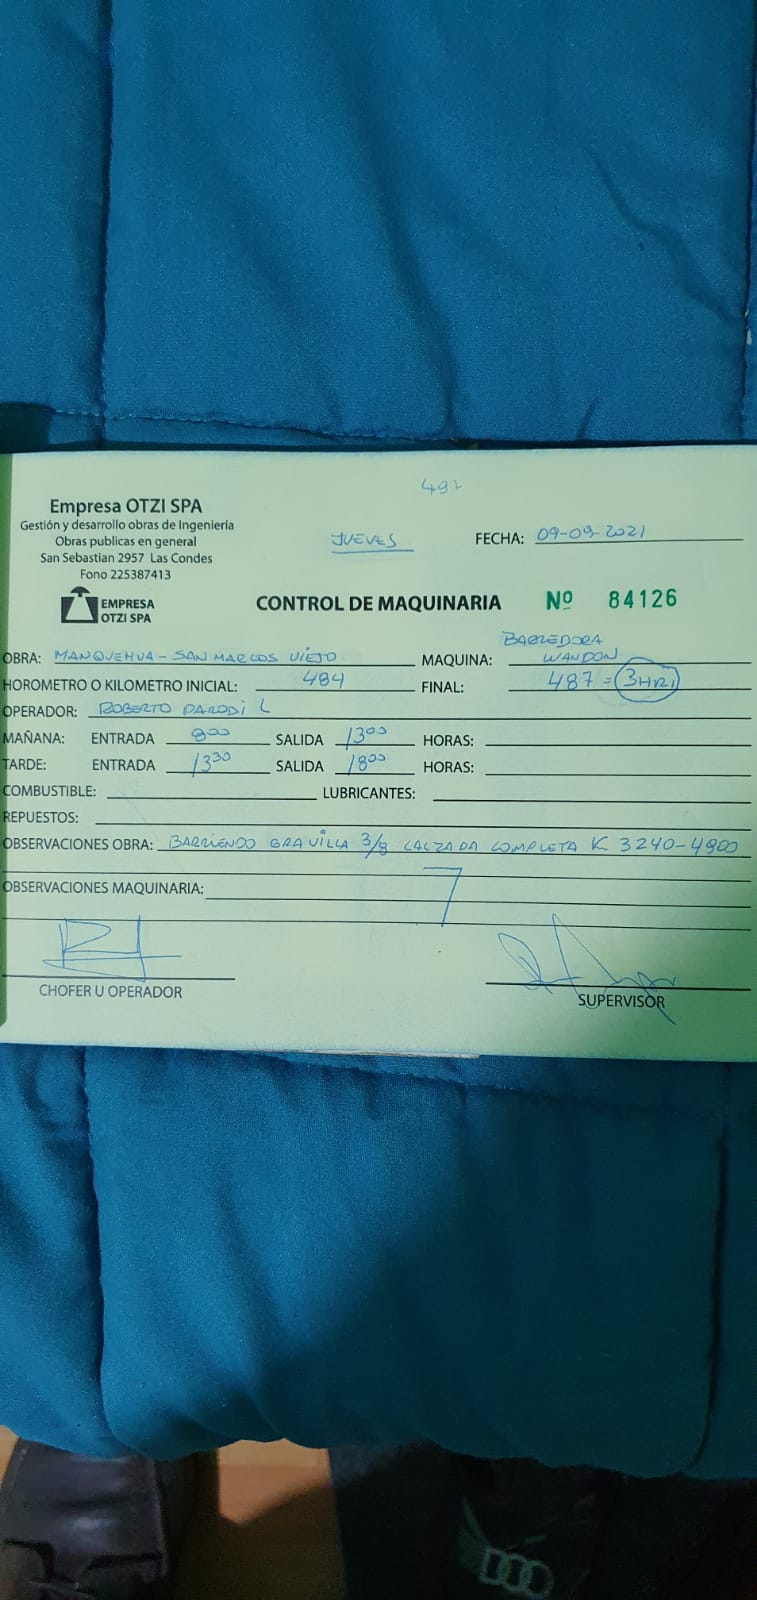 497
Empresa OTZI SPA
Gestión y desarrollo obras de Ingeniería
Obras publicas en general
San Sebastian 2957 Las Condes
Fono 225387413
EMPRESA
OTZI SPA
JUEVES
FECHA: 09-09-2021
CONTROL DE MAQUINARIA Nº 84126
OBRA: MANQUEHUA - SAN MARCOS VIEJO
MAQUINA: BARREDORA
WANDON
HOROMETRO O KILOMETRO INICIAL: 484 FINAL: 487 = 3HRS
OPERADOR: ROBERTO PARODI L
MAÑANA: ENTRADA 800 SALIDA 1300 HORAS:
TARDE: ENTRADA 1330 SALIDA 1800 HORAS:
COMBUSTIBLE: LUBRICANTES:
REPUESTOS:
OBSERVACIONES OBRA: BARRIENDO GRAVILLA 3/8 CALZADA COMPLETA K 3240-4900
OBSERVACIONES MAQUINARIA:
CHOFER U OPERADOR SUPERVISOR